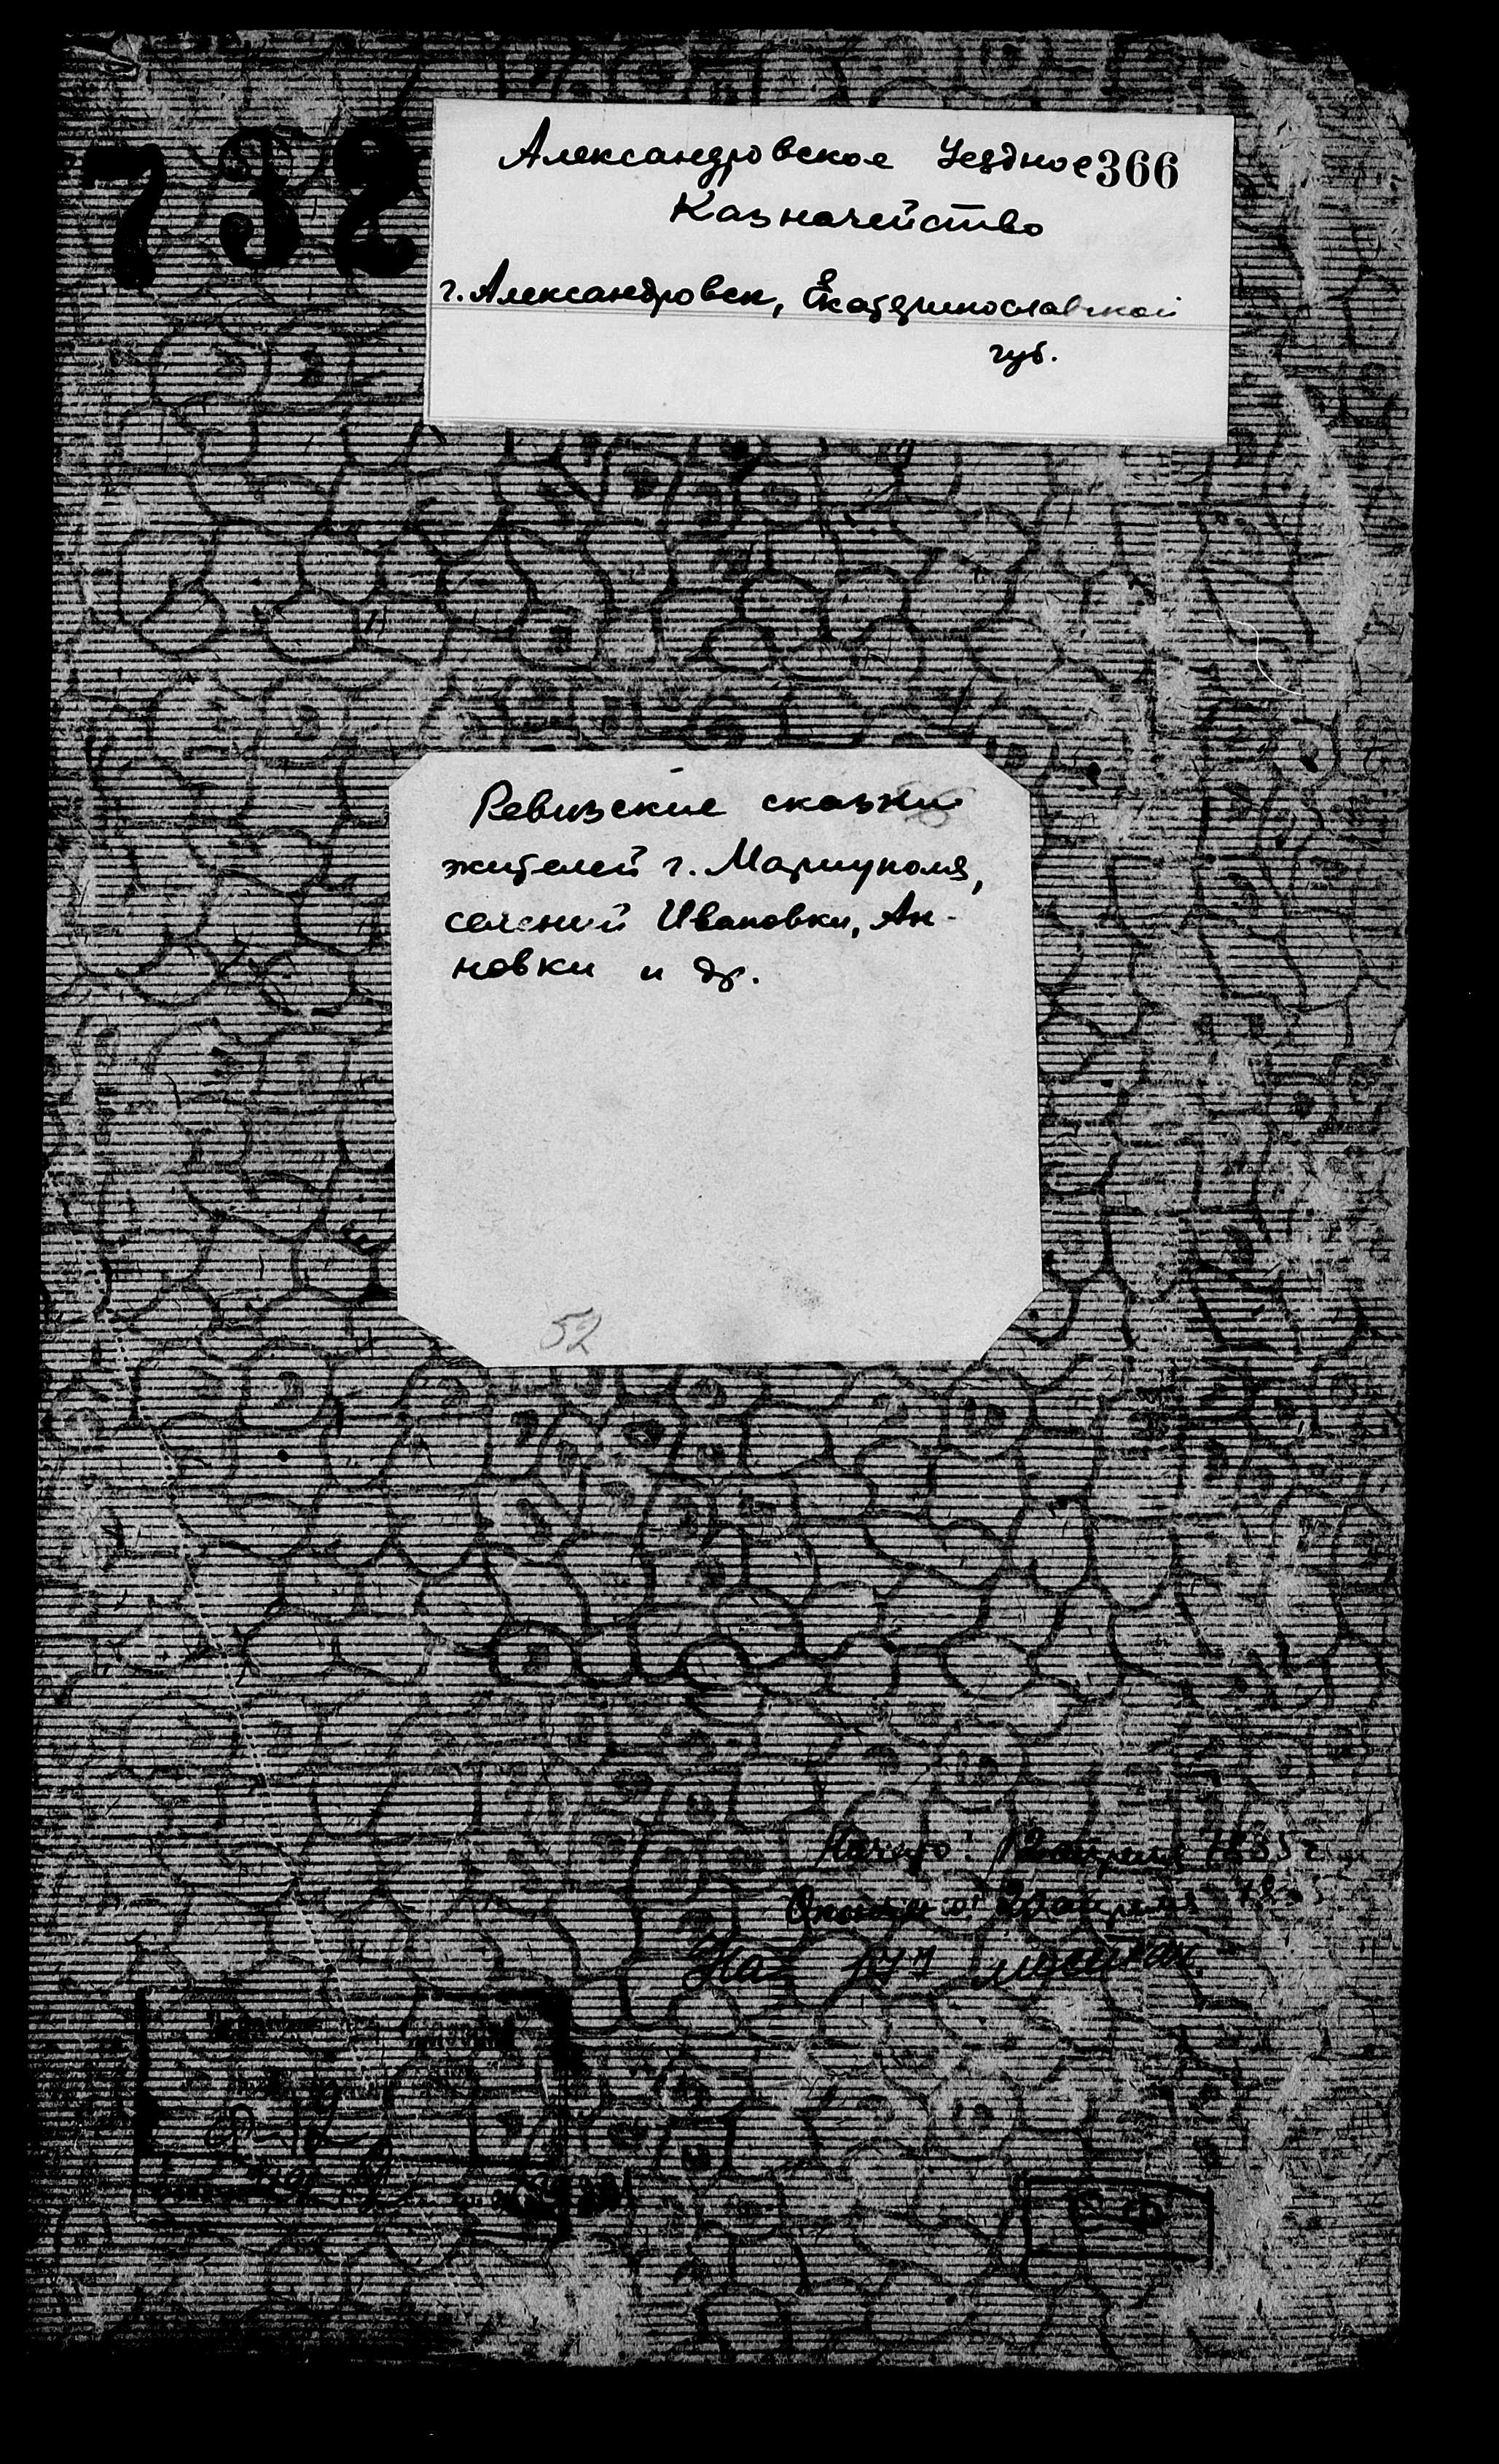 732
Александровское Уездное 366
Казначейство
г. Александровск, Екатеринославской
губ.
Ревизские сказки
жителей г. Мариуполя,
селений Ивановки, Ан-
новки и др.
52
Начато: апреля
Окончено: апреля
На 177 листах